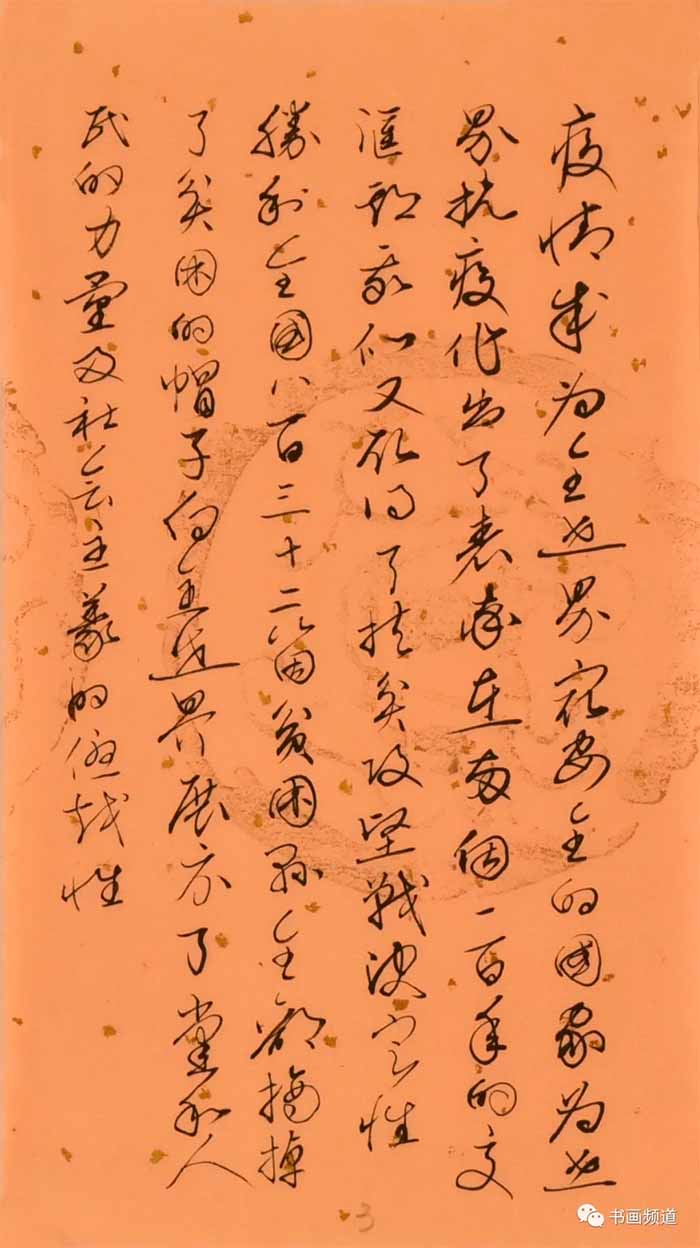 疫情成为全世界最安全的国家为世
界抗疫作出了表率在两个一百年的交
汇期我们又取得了扶贫攻坚战决定性
勝利全国八百三十二个贫困县全部摘掉
了贫困的帽子向全世界展示了党和人
民的力量及社会主义的优越性
3
书画频道